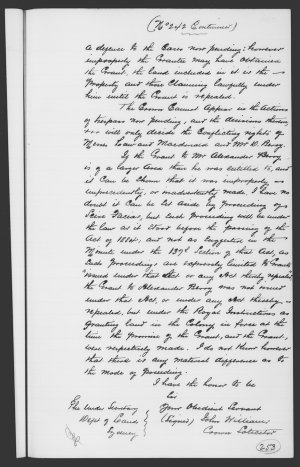 (No 242 Continued)
a defence to the Cases now pending; however
improperly the Grantee may have obtained
the Grant, the land included in it is the
property and those claiming lawfully under
him until the Grant is repealed.
The Crown Cannot Appear in the Actions
of trespass now pending, and the decisions therein
will only decide the Conflicting rights of
Messrs and Macdonald and Mr D. Berry.
If the Grant to Mr Alexander Berry
is of a larger Area than he was entitled to, and
it Can be shewn that it was improperly or
improvidently, or inadvertently made, I have no
doubt it Can be Set Aside by proceedings of
Scire Facias, but such proceedings will be under
the law as it stood before the passing of the
Act of 1884, and not as suggested in the
Minute under the 137th Section of that Act, as
Such Proceedings are expressly limited to Grants
issued under that Act or any Act thereby repealed,
the Grant to Alexander Berry was not issued
under that Act, or under any Act thereby
repealed, but under the Royal Instructions as
granting land in the Colony in force at the
time the promise of the Grant, and the Grant,
were respectively made. I do not think however
that there is any material difference as to
the mode of proceeding.
I have the honor to be
Sir
Your Obedient Servant
(Signed) John Williams
Crown Solicitor
The Under Secretary
Dept of Lands
Sydney
253